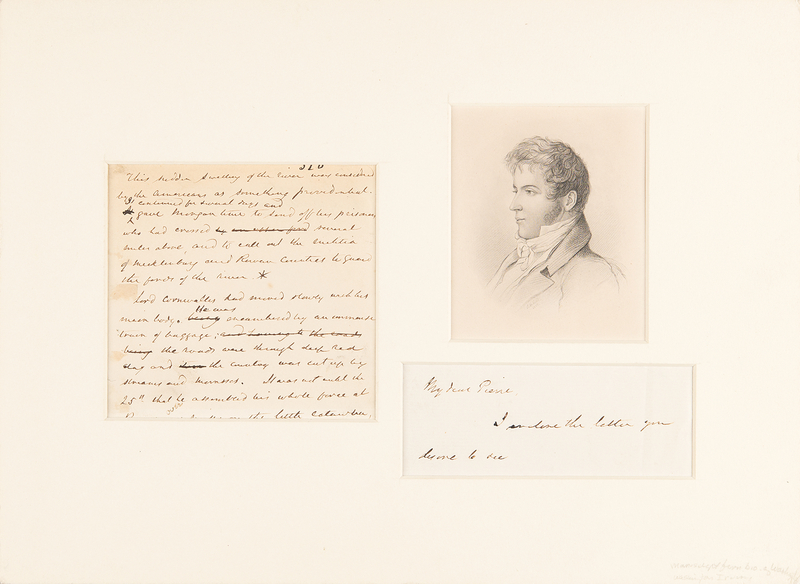 320
This sudden swelling of the river was considered
by the Americans as something providential.
It continued for several days and
gave Morgan time to send off his prisoners
who had crossed several
miles above, and to call out the militia
of Mecklenburg and Rowan Counties to guard
the fords of the river *
Lord Cornwallis had moved slowly with his
He was
main body. being encumbered by an immense
train of baggage; and having to the roads
being the roads were through deep red
clay and the country was cut up by
streams and morasses. It was not until the
25th that he assembled his whole force at
on the little Catawba,
My dear Pierre
I enclose the letter you
desire to see